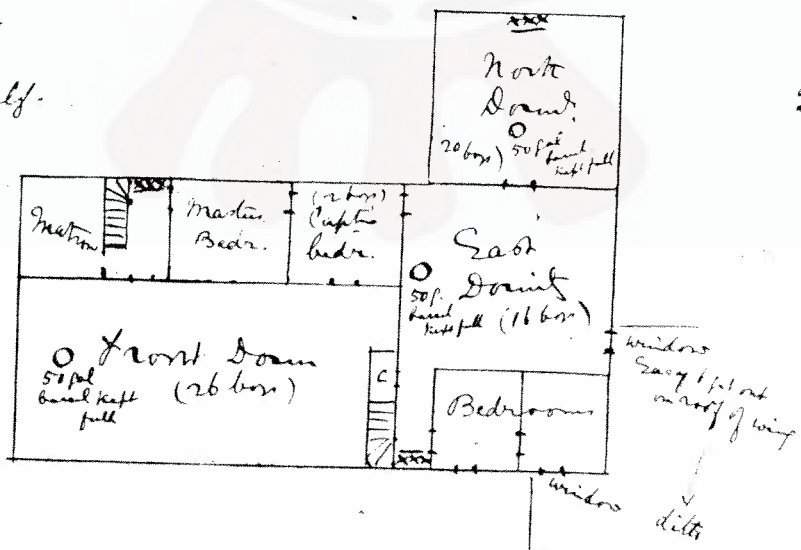 North
Dormit.
20 boys) 50 gal
barrel
kept full
Matron
Masters
Bedr.
(2 boys)
Capt's
bedr.
East
Dormity
(16 boys)
50 g.
barrel
kept full
Front Dorm
(26 boys)
50 gal
barrel kept
full
C
Bedrooms
window
Easy to get out
on roof of wing
window
ditto